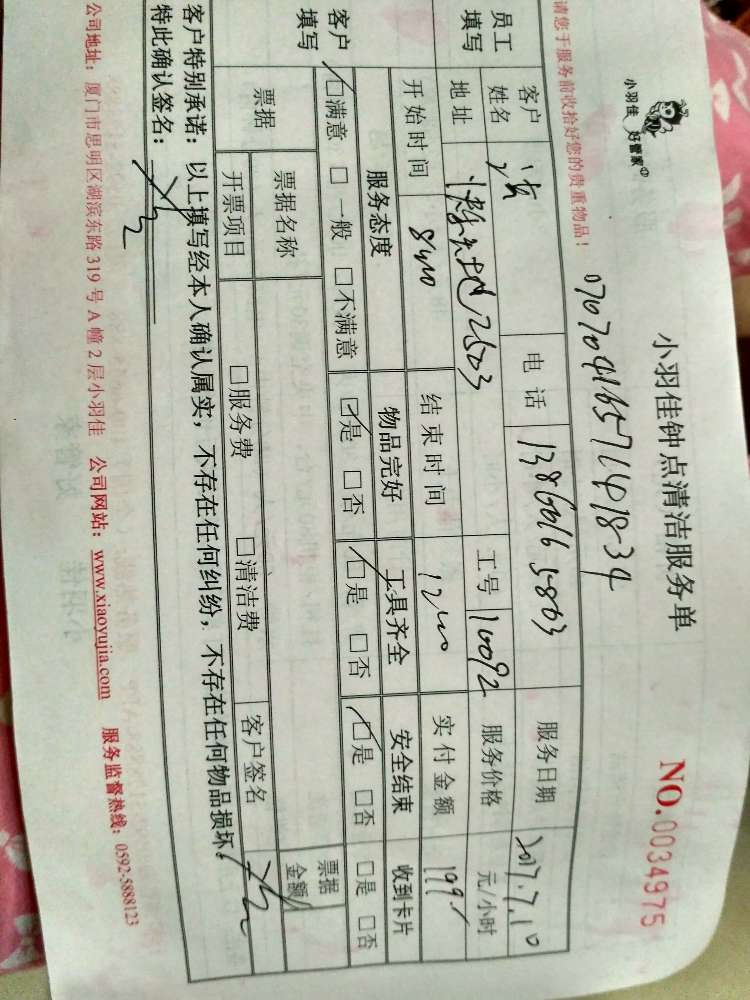 小羽佳 好管家
小羽佳钟点清洁服务单
NO.0034975
请您于服务前收拾好您的贵重物品！
0707041657141834
员工填写 客户姓名 电话 服务日期 2017.7.10
地址 2503 工号 10092 服务价格 元/小时
开始时间 8:00 结束时间 12:00 实付金额 199
客户填写 服务态度 物品完好 工具齐全 安全结束 收到卡片
□满意 □一般 □不满意 □是 □否 □是 □否 □是 □否 □是 □否
票据 票据名称 票据金额
开票项目 □服务费 □清洁费 客户签名
客户特别承诺：以上填写经本人确认属实，不存在任何纠纷，不存在任何物品损坏。
特此确认签名：
公司地址：厦门市思明区湖滨东路319号A幢2层小羽佳 公司网站：www.xiaoyujia.com 服务监督热线：0592-5888123